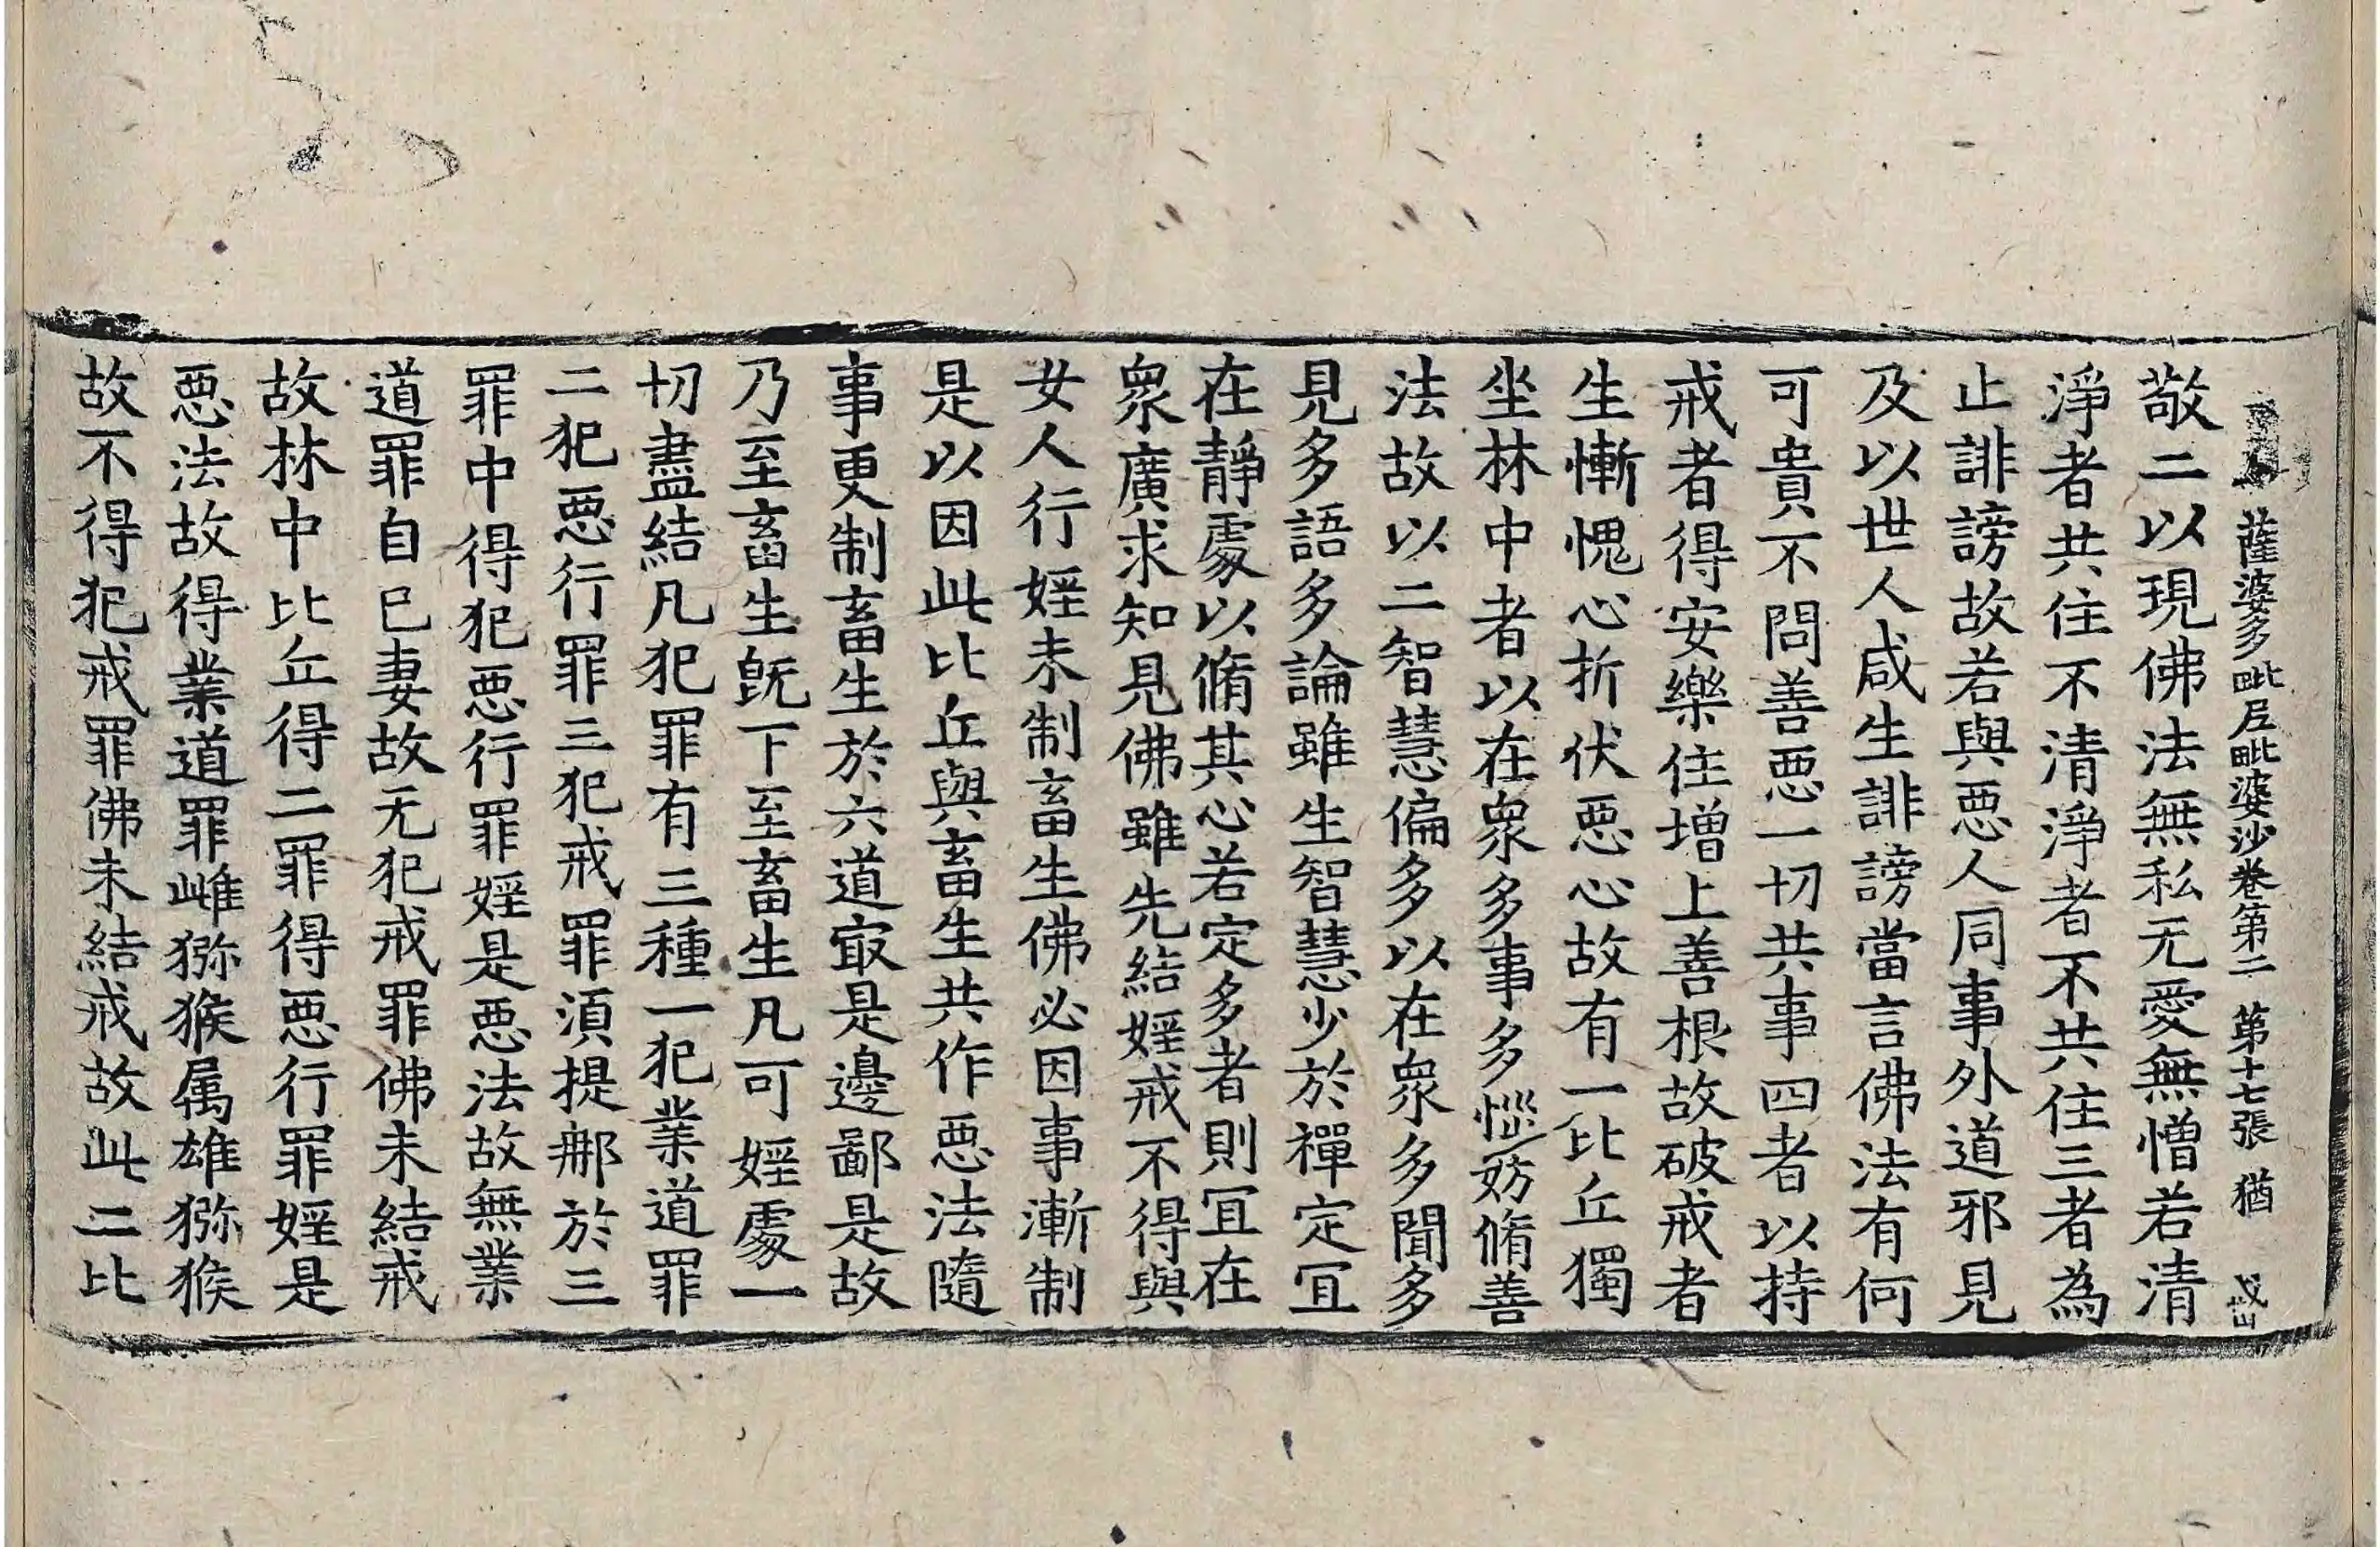 薩婆多毗尼毗婆沙卷第二 第十七張 猶
敬二以現佛法無私无愛無憎若清
淨者共住不清淨者不共住三者為
止誹謗故若與惡人同事外道邪見
及以世人咸生誹謗當言佛法有何
可貴不問善惡一切共事四者以持
戒者得安樂住增上善根故破戒者
生慚愧心折伏惡心故有一比丘獨
坐林中者以在衆多事多惱妨脩善
法故以二智慧偏多以在衆多聞多
見多語多論雖生智慧少於禪定冝
在靜處以脩其心若定多者則冝在
衆廣求知見佛雖先結婬戒不得與
女人行婬未制畜生佛必因事漸制
是以因此比丘與畜生共作惡法隨
事更制畜生於六道㝡是邊鄙是故
乃至畜生旣下至畜生凡可婬處一
切盡結凡犯罪有三種一犯業道罪
二犯惡行罪三犯戒罪湏提那於三
罪中得犯惡行罪婬是惡法故無業
道罪自已妻故无犯戒罪佛未結戒
故林中比丘得二罪得惡行罪婬是
惡法故得業道罪雌猕猴属雄猕猴
故不得犯戒罪佛未結戒故此二比